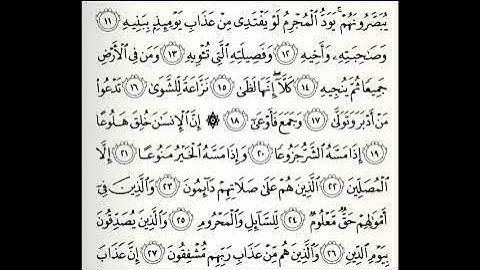 يُبَصَّرُونَهُمْ ۚ يَوَدُّ ٱلْمُجْرِمُ لَوْ يَفْتَدِى مِنْ عَذَابِ يَوْمِئِذٍۭ بِبَنِيهِ ١١
وَصَٰحِبَتِهِۦ وَأَخِيهِ ١٢ وَفَصِيلَتِهِ ٱلَّتِى تُـْٔوِيهِ ١٣ وَمَن فِى ٱلْأَرْضِ
جَمِيعًا ثُمَّ يُنجِيهِ ١٤ كَلَّآ ۖ إِنَّهَا لَظَىٰ ١٥ نَزَّاعَةً لِّلشَّوَىٰ ١٦ تَدْعُوا۟
مَنْ أَدْبَرَ وَتَوَلَّىٰ ١٧ وَجَمَعَ فَأَوْعَىٰٓ ١٨ ۞ إِنَّ ٱلْإِنسَٰنَ خُلِقَ هَلُوعًا
١٩ إِذَا مَسَّهُ ٱلشَّرُّ جَزُوعًا ٢٠ وَإِذَا مَسَّهُ ٱلْخَيْرُ مَنُوعًا ٢١ إِلَّا
ٱلْمُصَلِّينَ ٢٢ ٱلَّذِينَ هُمْ عَلَىٰ صَلَاتِهِمْ دَآئِمُونَ ٢٣ وَٱلَّذِينَ فِىٓ
أَمْوَٰلِهِمْ حَقٌّ مَّعْلُومٌ ٢٤ لِّلسَّآئِلِ وَٱلْمَحْرُومِ ٢٥ وَٱلَّذِينَ يُصَدِّقُونَ
بِيَوْمِ ٱلدِّينِ ٢٦ وَٱلَّذِينَ هُم مِّنْ عَذَابِ رَبِّهِم مُّشْفِقُونَ ٢٧ إِنَّ عَذَابَ